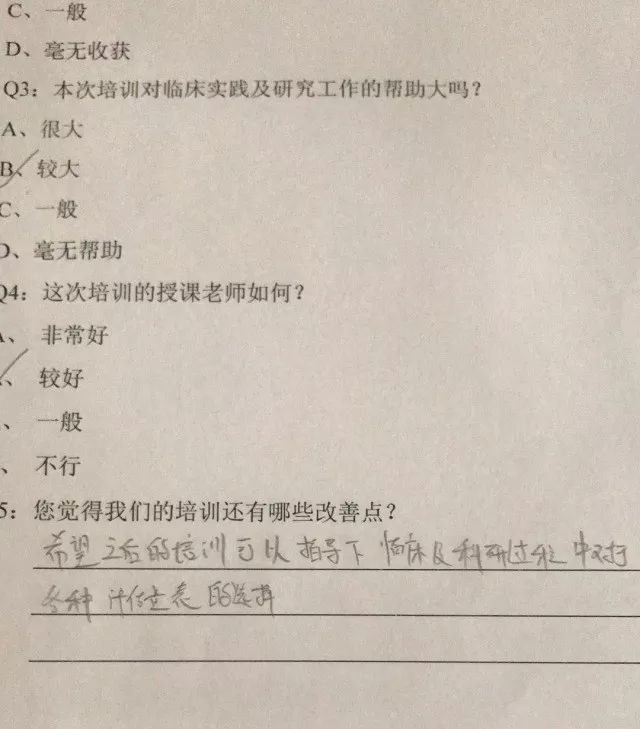 C、一般
D、毫无收获
Q3：本次培训对临床实践及研究工作的帮助大吗？
A、很大
B、较大
C、一般
D、毫无帮助
Q4：这次培训的授课老师如何？
、 非常好
、 较好
、 一般
、 不行
5：您觉得我们的培训还有哪些改善点？
希望之后的培训可以指导下临床及科研过程中对
各种评估量表的选择